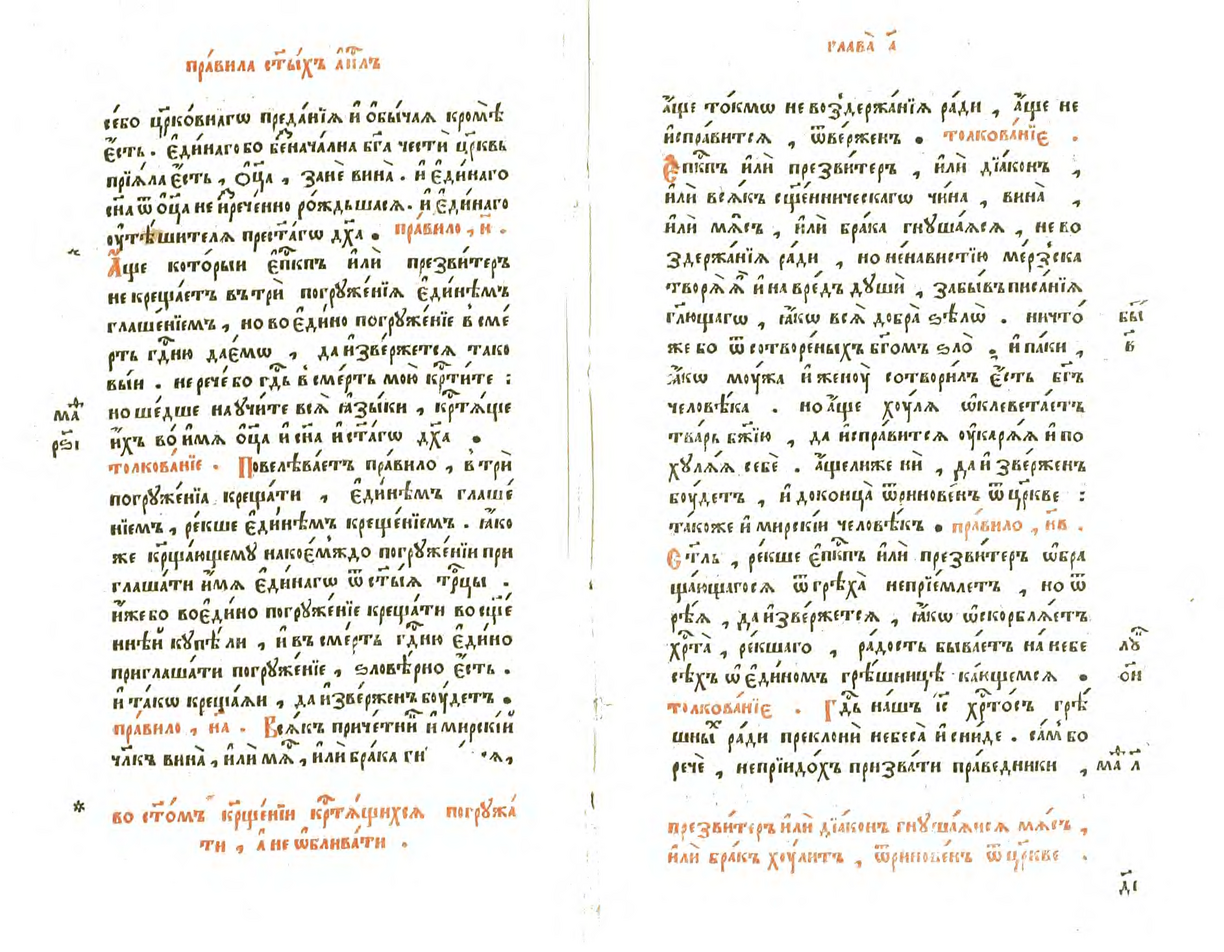 пра́вила ст҃ы́хъ а҆п҃лъ
се́бо цр҃ко́внагѡ преда́нїѧ и҆ ѻ҆бы́чаѧ кромѣ̀
є҆́сть . є҆ди́наго бо беⷥнача́лна бг҃а че́сти цр҃квь
прїѧ́ла є҆́сть , ѻ҆ц҃а , занѐ вина̀ . и҆ є҆ди́наго
сн҃а ѿ ѻ҆ц҃а не и҆ⷥрече́нно ро́ждьшасѧ . и҆ є҆ди́наго
ᲂу҆тѣ́шителѧ прест҃а́гѡ дх҃а . пра́вило , н҃ .
А҆́ще кото́рыи є҆пⷭ҇кпъ и҆лѝ презви́теръ
не креща́етъ въ трѝ погрꙋже́нїѧ є҆ди́нѣмъ
глаше́нїемъ , но во є҆ди́но погрꙋже́нїе в сме́
рть гдⷭ҇ню дае́мѡ , да и҆зве́ржетсѧ тако
вы́и . не рече́ бо гдⷭ҇ь в сме́рть мою̀ крⷭ҇ти́те :
но ше́дше наꙋчи́те всѧ̀ ꙗ҆зы́ки , крⷭ҇тѧ́ще
и҆̀хъ во и҆́мѧ ѻ҆ц҃а и҆ сн҃а и҆ ст҃а́гѡ дх҃а .
толкова́нїе . Повелѣва́етъ пра́вило , в трѝ
погрꙋже́нїа креща́ти , є҆ди́нѣмъ глаше́
нїемъ , ре́кше є҆ди́нѣмъ креще́нїемъ . ꙗ҆́ко
же крⷭ҇ща́ющемꙋ на кое́мждо погрꙋже́нїи при
глаша́ти и҆́мѧ є҆ди́нагѡ ѿ ст҃ы́ѧ трⷪ҇цы .
и҆́же бо во є҆ди́но погрꙋже́нїе креща́ти во сще҃
ннѣ́й кꙋпѣ́ли , и҆ въ сме́рть гдⷭ҇ню є҆ди́но
приглаша́ти погрꙋже́нїе , ѕловѣ́рно є҆́сть .
и҆ та́кѡ креща́ѧи , да и҆зве́рженъ бꙋ́детъ .
пра́вило , н҃а . Всѧ́къ приче́тниⷦ и҆ мирскі́й
члк҃ъ вина̀ , и҆лѝ мѧⷭ , и҆лѝ бра́ка
во ст҃о́мъ крⷭ҇ще́нїи крⷭ҇тѧ́щихсѧ погрꙋжа́
ти , а҆ не ѡ҆блива́ти .
маⷴ҇
рѕ҃і
глава̀ а҃
а҆́ще то́кмѡ не воⷥдержа́нїѧ ра́ди , а҆́ще не
и҆спра́витсѧ , ѿве́рженъ . толкова́нїе .
Є҆пⷭ҇кпъ и҆лѝ презви́теръ , и҆лѝ дїа́конъ ,
и҆лѝ всѧ́къ сщ҃е́нническагѡ чи́на , вина̀ ,
и҆лѝ мѧ́съ , и҆лѝ бра́ка гнꙋша́ѧсѧ , не во
здержа́нїѧ ра́ди , но не́навистїю ме́рзска
творѧ̀ ѧ҆̀ и҆ на вре́дъ дꙋшѝ , забы́въ писа́нїѧ
гл҃ющагѡ , ꙗ҆́кѡ всѧ̀ добра̀ ѕѣлѡ̀ . ничто́
же бо ѿ сотворе́ныхъ бг҃омъ ѕло̀ , и҆ па́ки ,
ꙗ҆́кѡ мᲂу́жа и҆ женᲂу̀ сотвори́лъ є҆́сть бг҃ъ
человѣ́ка . но а҆́ще хᲂу́лѧ ѡ҆клевета́етъ
тва́рь бж҃їю , да и҆спра́витсѧ ᲂу҆карѧ́ѧ и҆ по
хꙋлѧ́ѧ себѐ . а҆́ще ли же нѝ , да и҆зве́рженъ
бᲂу́детъ , и҆ до конца̀ ѿринове́нъ ѿ цр҃кве :
та́коже и҆ мирскі́й человѣ́къ . пра́вило , н҃в .
Ст҃ль , ре́кше є҆пⷭ҇кпъ и҆лѝ презви́теръ ѡ҆бра
ща́ющагосѧ ѿ грѣха̀ непрїе́млетъ , но ѿ
рѣ́ѧ , да и҆зве́ржетсѧ , ꙗ҆́кѡ ѡ҆скорблѧ́етъ
хрⷭ҇та̀ , ре́кшаго , ра́дость быва́етъ на небе
сѣ́хъ ѡ҆ є҆ди́номъ грѣ́шницѣ ка́ющемсѧ .
толкова́нїе . Гдⷭ҇ь на́шъ і҆с҃ хрⷭ҇то́съ грѣ́
шныⷯ ра́ди преклонѝ небеса̀ и҆ сни́де . са́м бо
речѐ , непрїидо́хъ призва́ти пра́ведники ,
презви́теръ и҆лѝ дїа́конъ гнꙋша́ѧисѧ мѧ́съ ,
и҆лѝ бра́къ хᲂу́литъ , ѿринове́нъ ѿ цр҃кве .
бы
в҃
лꙋⷦ
ѻ҆и
маⷴ҇ л҃
д҃і